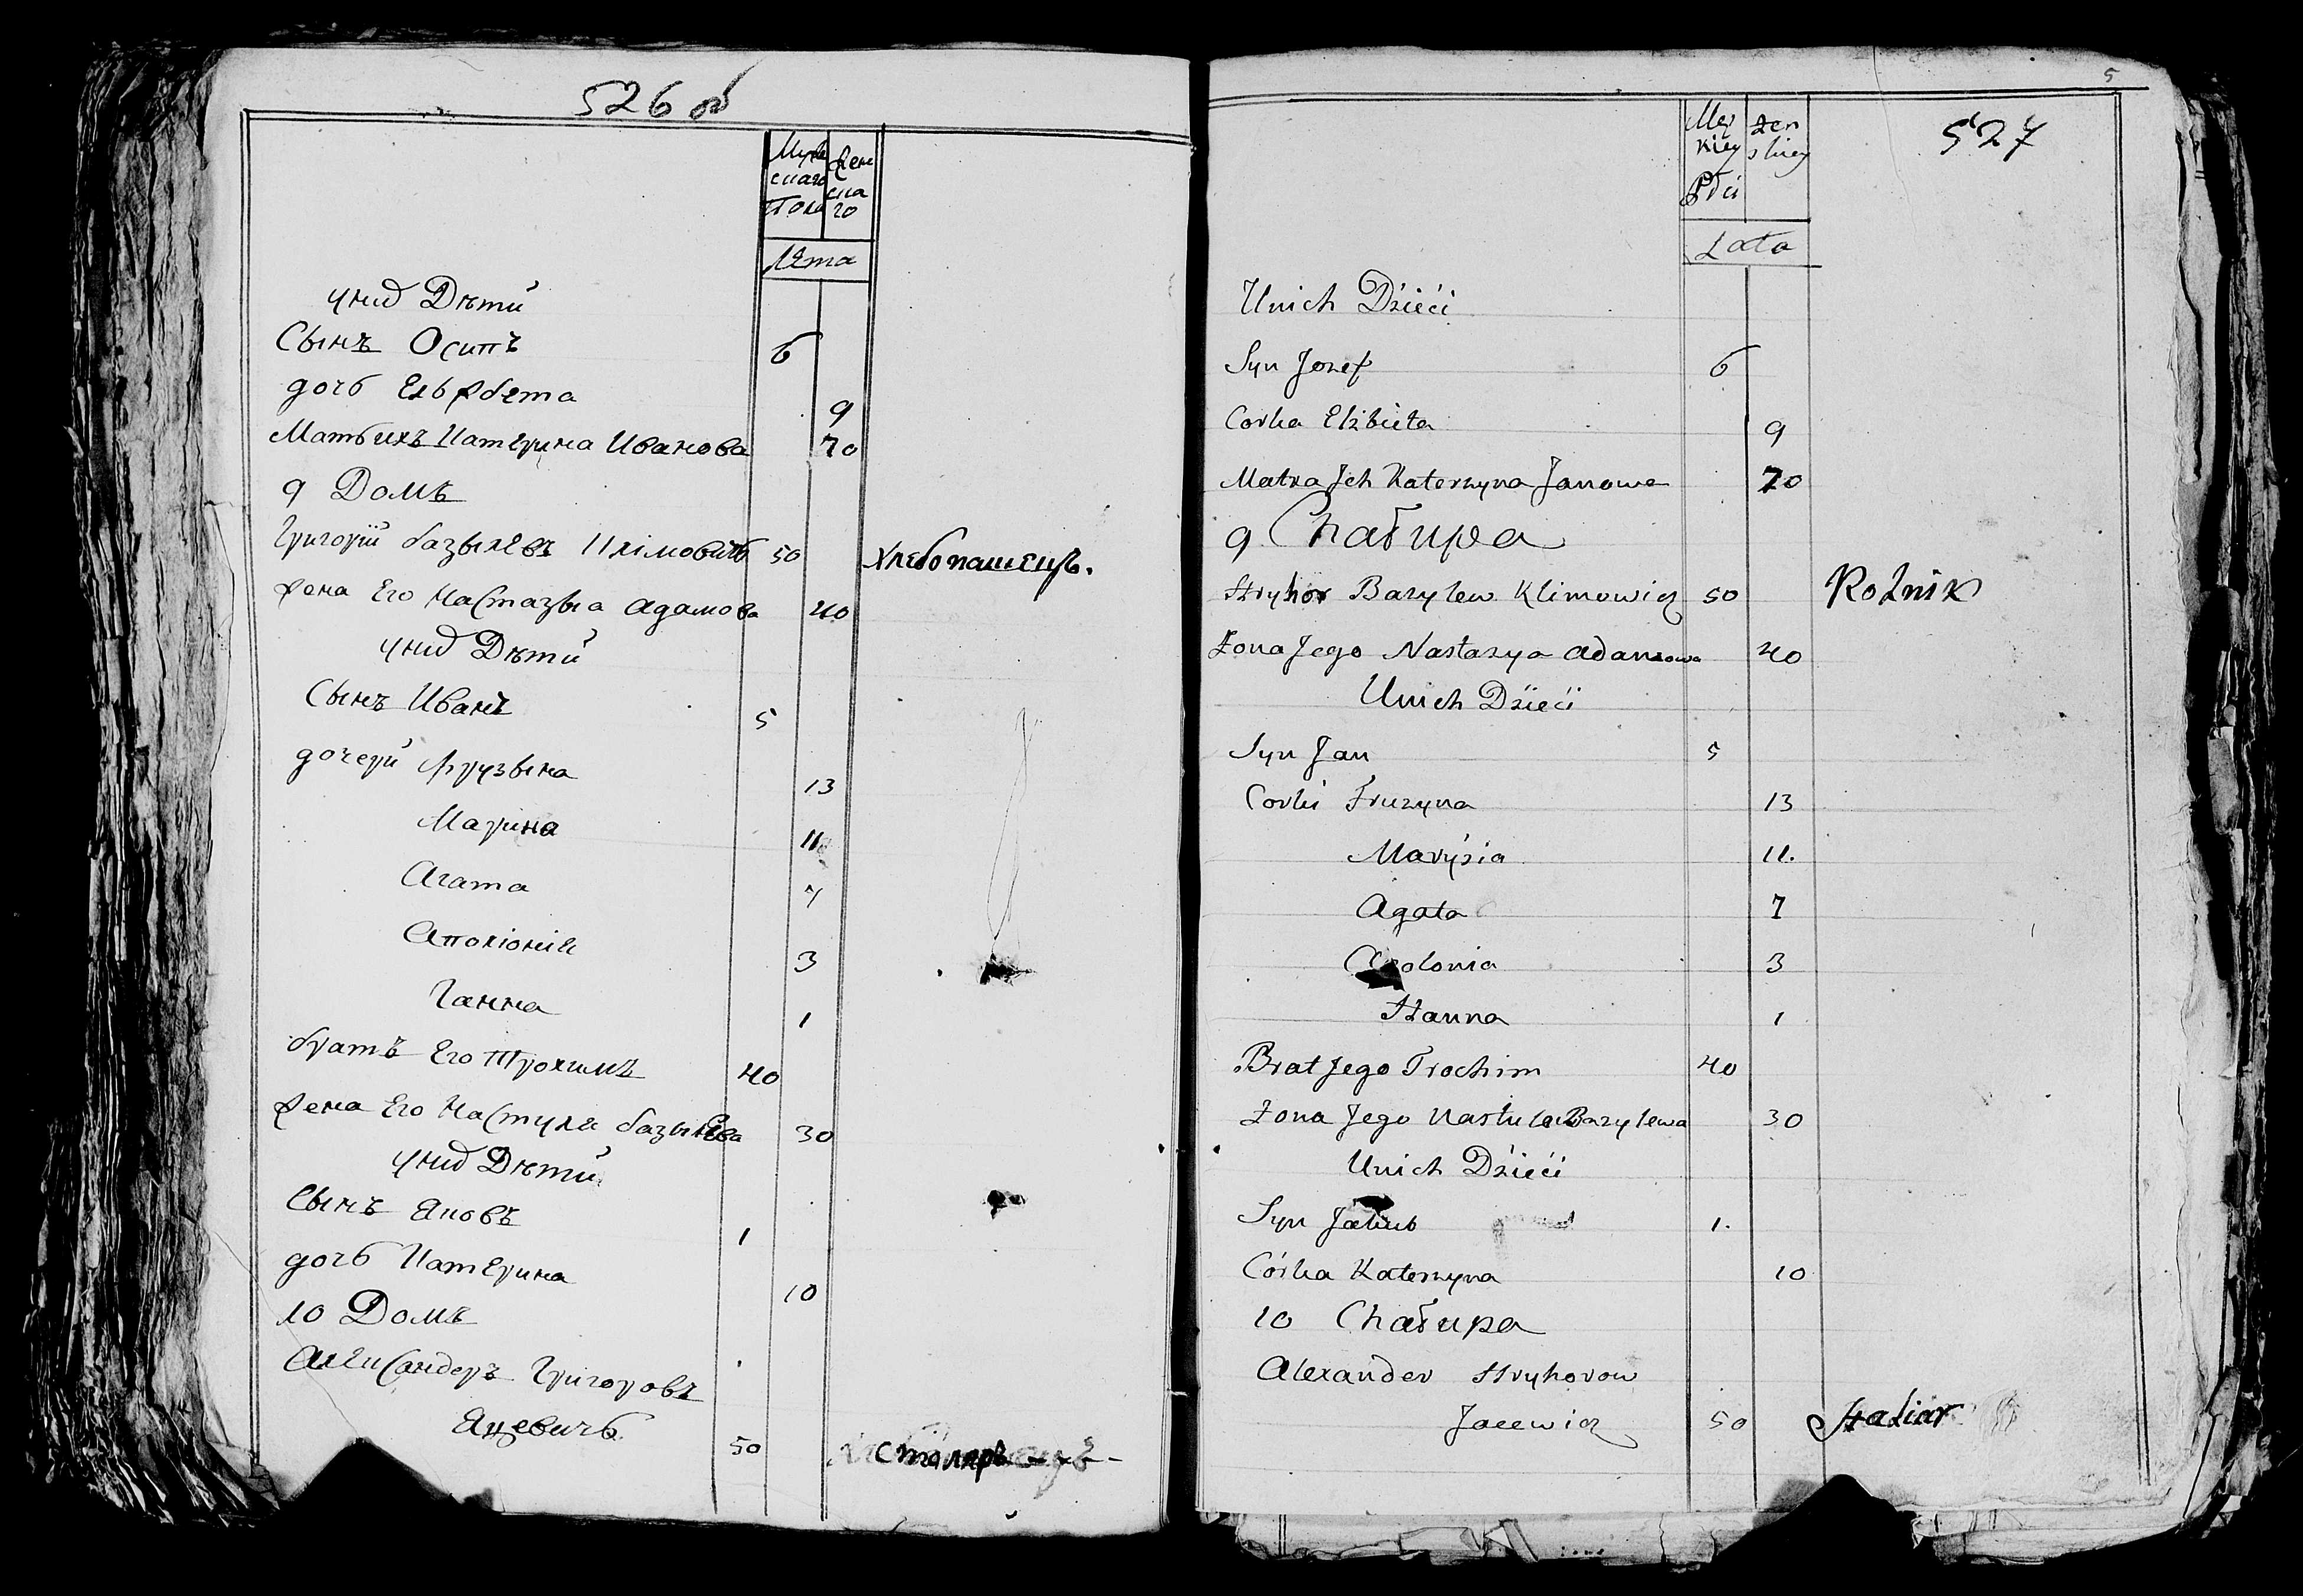 526 об
Мужескаго Пола
Женскаго
Лѣта
у нид Дѣти
Сынъ Осипъ 6
дочь Ельжбета 9
Мать ихъ Катерина Иванова 70
9 Домъ
Григорій базылевъ Климовичъ 50 Хлебопашецъ.
жена Его Настазыа адамова 40
у нид Дѣти
Сынъ Иванъ 5
дочери Фрузына 13
Марина 11
Агата 7
Аполіонія 3
Ганна 1
братъ Его Трохимъ 40
жена Его Настуля базылева 30
у нид Дѣти
Сынъ Яковъ 1
дочь Катерина 10
10 Домъ
Александеръ Григоровъ
Яцевичъ 50 Столяръ
5
527
Męzkiey Płci
żenskiey
Lata
Unich Dzieći
Syn Jozef 6
Corka Elżbieta 9
Matka Jch Katerzyna Janowa 70
9 Chałupa
Hryhor Bazylew Klimowicz 50 Rolnik
Żona Jego Nastazya adamowa 40
Unich Dzieći
Syn Jan 5
Corki Fruzyna 13
Marysia 11.
Agata 7
Apolonia 3
Hanna 1
Brat Jego Trochim 40
Żona Jego Nastula Bazylewa 30
Unich Dzieći
Syn Jakub 1.
Córka Katerzyna 10
10 Chałupa
Alexander Hryhorow
Jacewicz 50 Staliar